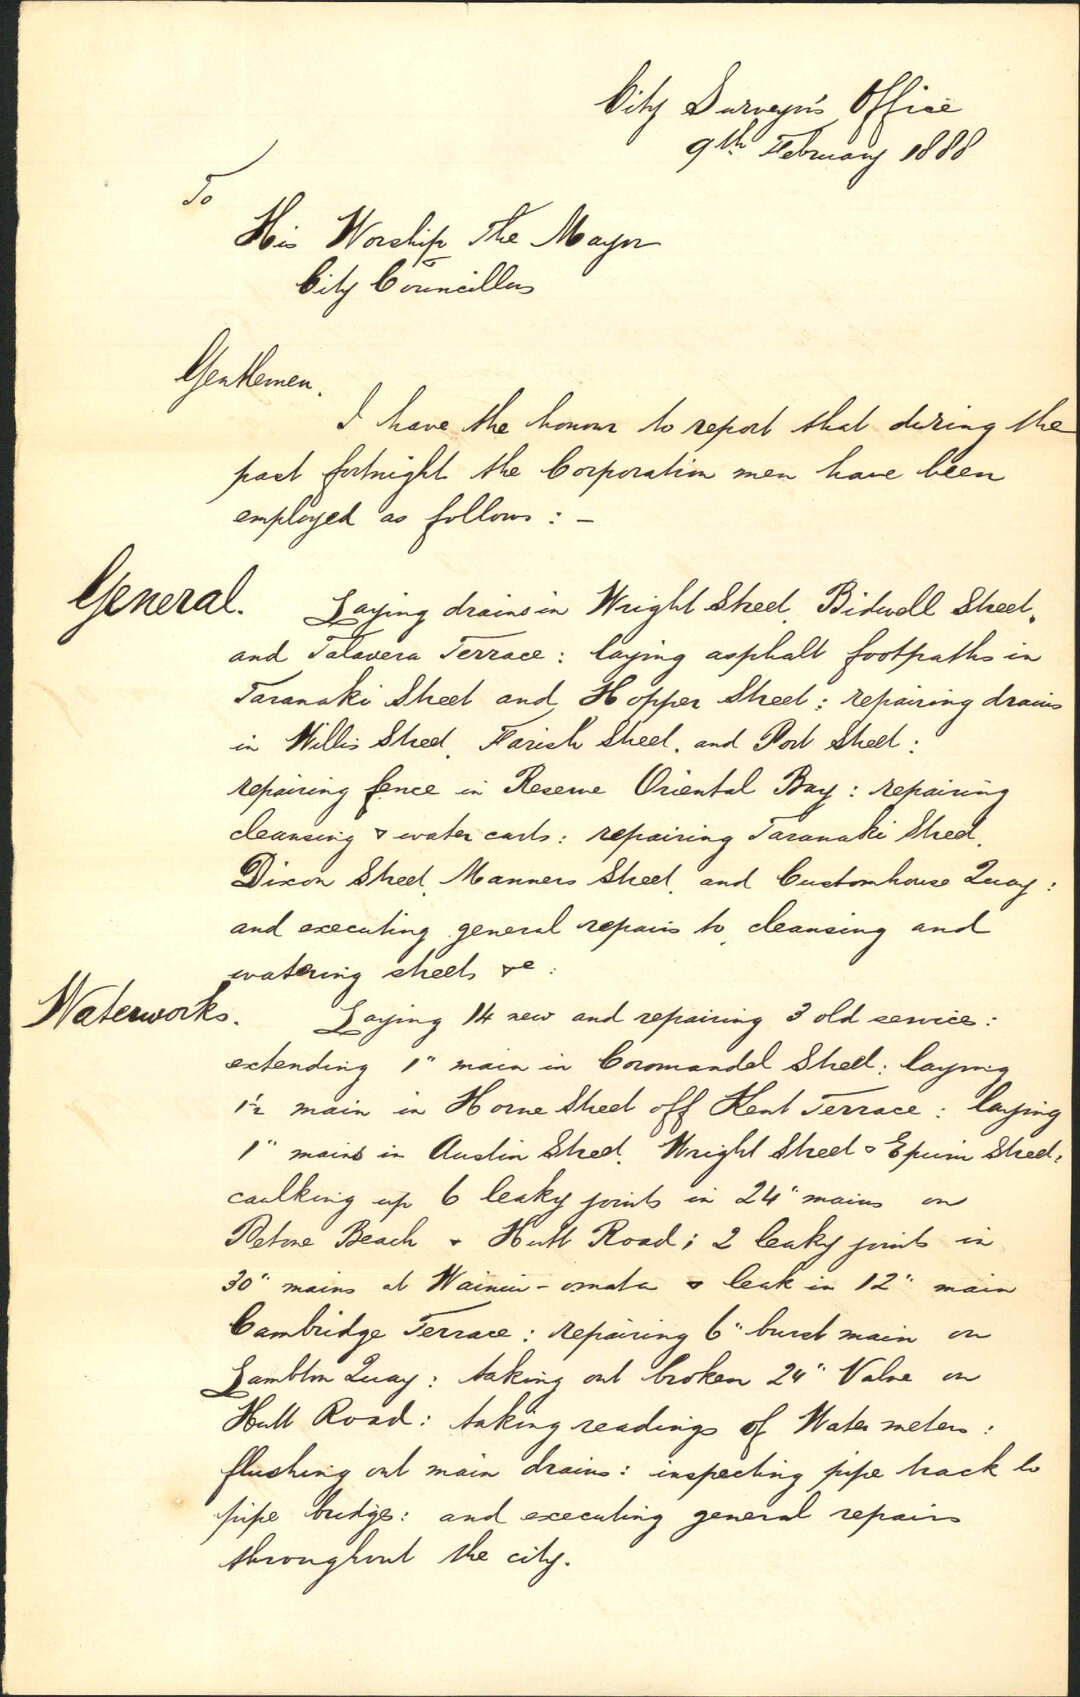 City Surveyor's Office
9th February 1888
To
His Worship The Mayor
City Councillors
Gentlemen.
I have the honour to report that during the
past fortnight the Corporation men have been
employed as follows : -
General. Laying drains in Wright Street, Bidwell Street,
and Talavera Terrace : laying asphalt footpaths in
Taranaki Street and Hopper Street : repairing drains
in Willis Street, Farish Street, and Port Street :
repairing fence in Reserve Oriental Bay : repairing
cleansing & water carts : repairing Taranaki Street,
Dixon Street, Manners Street, and Customhouse Quay :
and executing general repairs to, cleansing and
watering streets &c :
Waterworks. Laying 14 new and repairing 3 old service :
extending 1" main in Coromandel Street : laying
1½ main in Horne Street off Kent Terrace : laying
1" mains in Austin Street, Wright Street & Epuni Street :
caulking up 6 leaky joints in 24" mains on
Petone Beach & Hutt Road ; 2 leaky joints in
30" mains at Wainui-omata & leak in 12" main
Cambridge Terrace : repairing 6" burst main on
Lambton Quay : taking out broken 24" Valve on
Hutt Road : taking readings of Water meters :
flushing out main drains : inspecting pipe track to
pipe bridge : and executing general repairs
throughout the city.